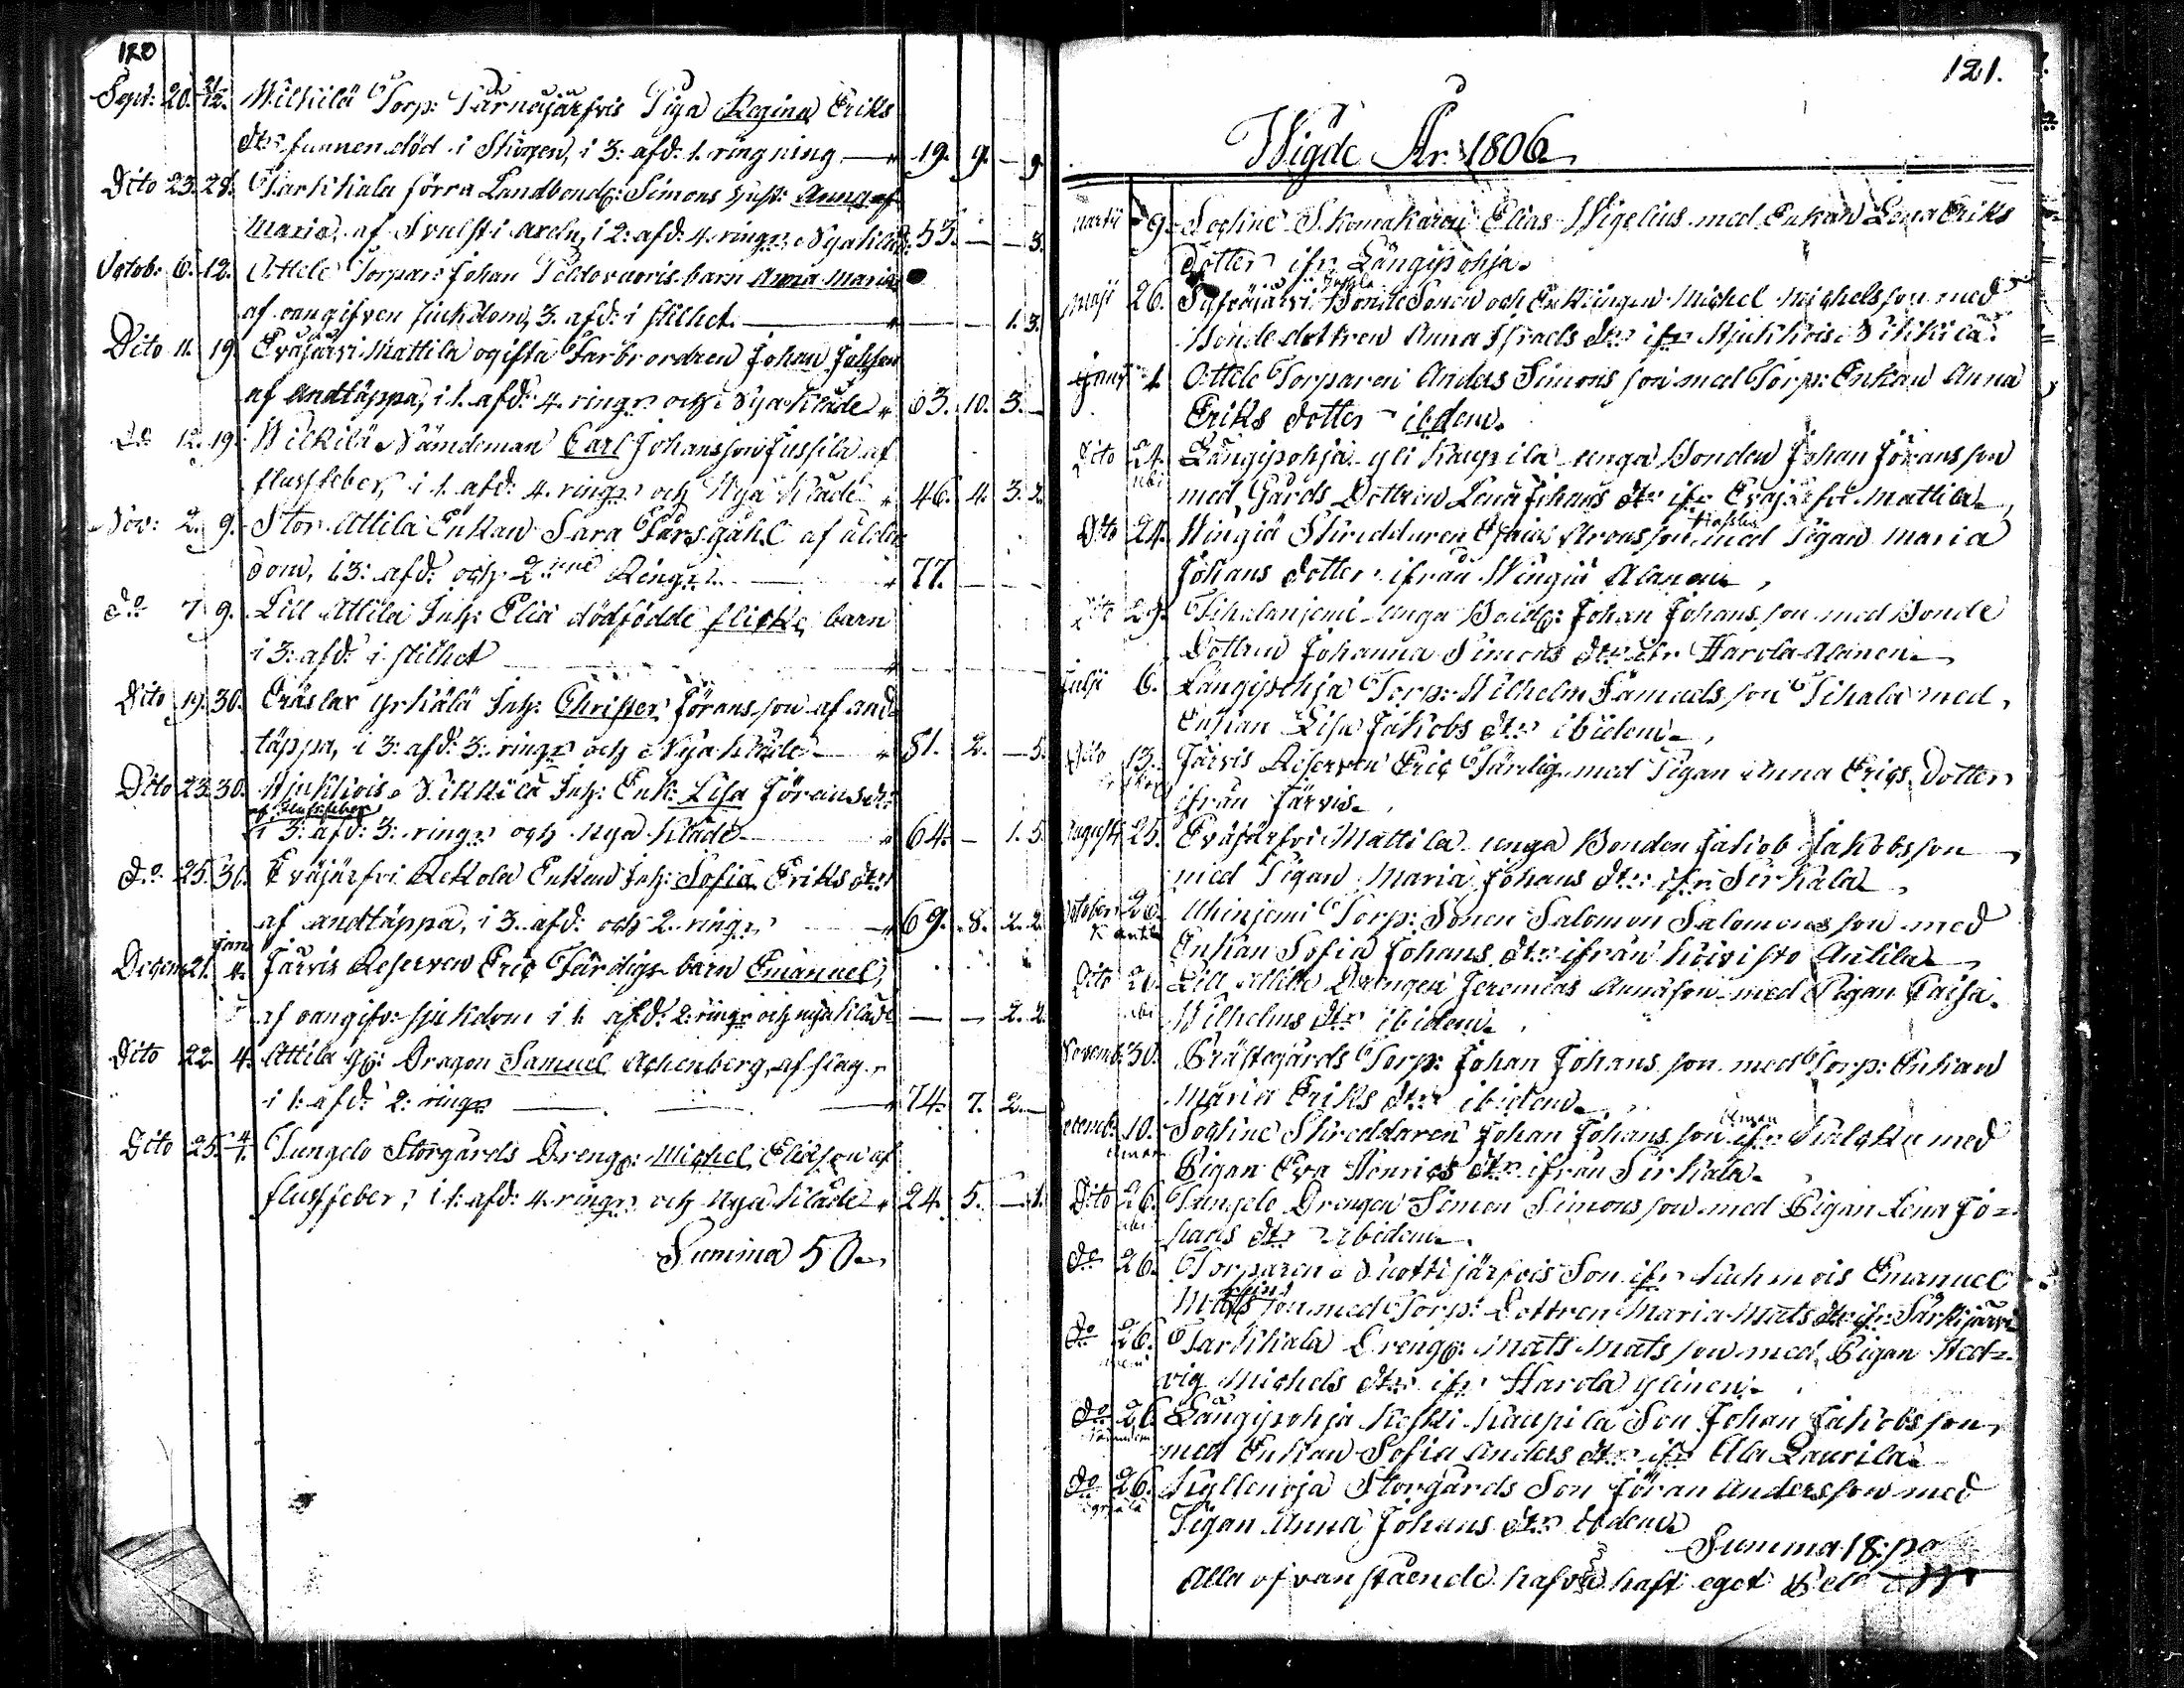 120
Sept: 20. 21/12. Wilkilä Torp: Tärnäjärfvis Piga Regina Eriks
dtr funnen död i Skogen, i 3: afd: 1. ringning — 19. 9. — 9.
Dito 23. 28. Tarkkala förra Landbond: Simons hust: Anna
Maria, af i 2: afd: 4. ringr: Nya kläde 53. — — 3.
Octob: 6. 12. Attele Torpar: Johan barn Anna Maria
af oangifven siukdom, 3. afd: i stilhet — — — 1. 3.
Dito 11. 19. Eräjärvi Mattila ogifta Farbrordren Johan Johsson
af Andtäppa, i 1. afd: 4. ringr: och Nya kläde 63. 10. 3. —
Do 12. 19. Wilkilä Nämdeman Carl Johansson Jussila af
flussfeber, i 1. afd: 4. ringr: och Nya kläde 46. 4. 3. 2.
Nov: 2. 9. Stor Attila Enkan Sara af ålder
dom, i 3: afd: och 2:ne Ringr: — 77. — — —
do 7 9. Lill Attila Inh: Eliä dödfödde flicke barn
i 3: afd: i stilhet — — — —
Dito 19. 30. Eräslax Yrkälä Inh: Christer Jöransson af and
täppa, i 3: afd: 3: ringr: och Nya kläde — 81. 2. — 5.
Dito 23. 30. Vikkilä Inh: Enk: Lisa Jöransdr:
af flussfeber
i 3: afd: 3: ringr: och nya kläde — 64. — 1. 5.
do 25. 30. Eräjärfvi Rekola Enkan Inh: Sofia Eriks dtr
af andtäppa, i 3. afd: och 2. ringr: — 69. 8. 2. 2.
Jan:
Decem: 21. 4. Järvis Reserven Eric Färdigs barn Emanuel,
af oangifv: sjukdom i 1. afd: 2: ringr och nya kläde — — 2. 2.
Dito 22. 4. Attila gb: Dragon Samuel Achenberg, af
i 1: afd: 2: ringr — 74. 7. 2. —
Dito 25. 4/1. Tungelo Storgårds Dreng: Michel Eliäson af
flussfeber, i 1: afd: 4. ringr: och Nya kläde 24. 5. — 1.
Summa 50.
121.
Wigde År 1806
Martii 9. Sockne Skomakaren Elias Wigelius med Enkan Lena Eriks
dotter ifr Längipohja.
Maji 26. Bonde Sonen och Enklingen Michel Michelsson med
Bonde dottren Anna Israels dtr ifr Vikkilä.
1. Attele Torparen Anders Simonsson med Torp: Enkan Anna
Eriks dotter ibdem.
Dito 24. Längipohja yli Kaupila unga Bonden Johan Jöransson
med Gårds Dottren Lena Johans dtr ifr Eräjärfvi Mattila
Dito 24. Wingiä Skreddaren Aronsson med Pigan Maria
Johans dotter ifrån Wingiä Alanen.
Dito 29. Tihalaniemi unga Bond: Johan Johansson med Bonde
Dottren Johanna Simons dtr ifr Harola Alanen
Julii 6. Längipohja Torp: Wilhelm Samuelsson Tihala med
Enkan Lisa Jakobs dtr ibidem
Dito 13. Järvis Reserven Eric Färdig med Pigan Anna Erics dotter
ifrån Järvis.
Augusti 25. Eräjärfvi Mattila unga Bonden Jakob Jakobsson
med Pigan Maria Johans dtr: ifr: Sirkala
October 26. Uhiniemi Torp: Sonen Salomon Salomonsson med
Enkan Sofia Johans dtr ifrån Koivisto Antila
Dito Lill Attila Drengen Jeremias med Pigan Caisa
Wilhelms dtr ibidem
Novemb: 30. Prästegårds Torp: Johan Johansson med Torp: Enkan
Maria Eriks dtr ibidem
Decemb: 10. Sockne Skreddaren Johan Johansson ifr med
Pigan Eva Henrics dtr ifrån Sirkala.
Dito 26. Tungelo Drengen Simon Simonsson med Pigan Lena Jo=
hans dtr ibidem.
do 26. Torparen Vuottijärfvis Son ifr Emanuel
Matsson med Torp: Dottren Maria Mats dtr ifr: Särkijärvi
do 26. Tarkkala Dreng: Mats Matsson med Pigan Hed=
vig Michels dtr ifr Harola ylinen
do 26. Längipohja Koski Kaupila Son Johan Jakobsson
med Enkan Sofia Anders dtr ifr Ala Laurila
do 26. Hyllenoja Storgårds Son Jöran Andersson med
Pigan Anna Johans dtr ibdem
Summa 18: pr
Alla ofvanstående hafva haft eget